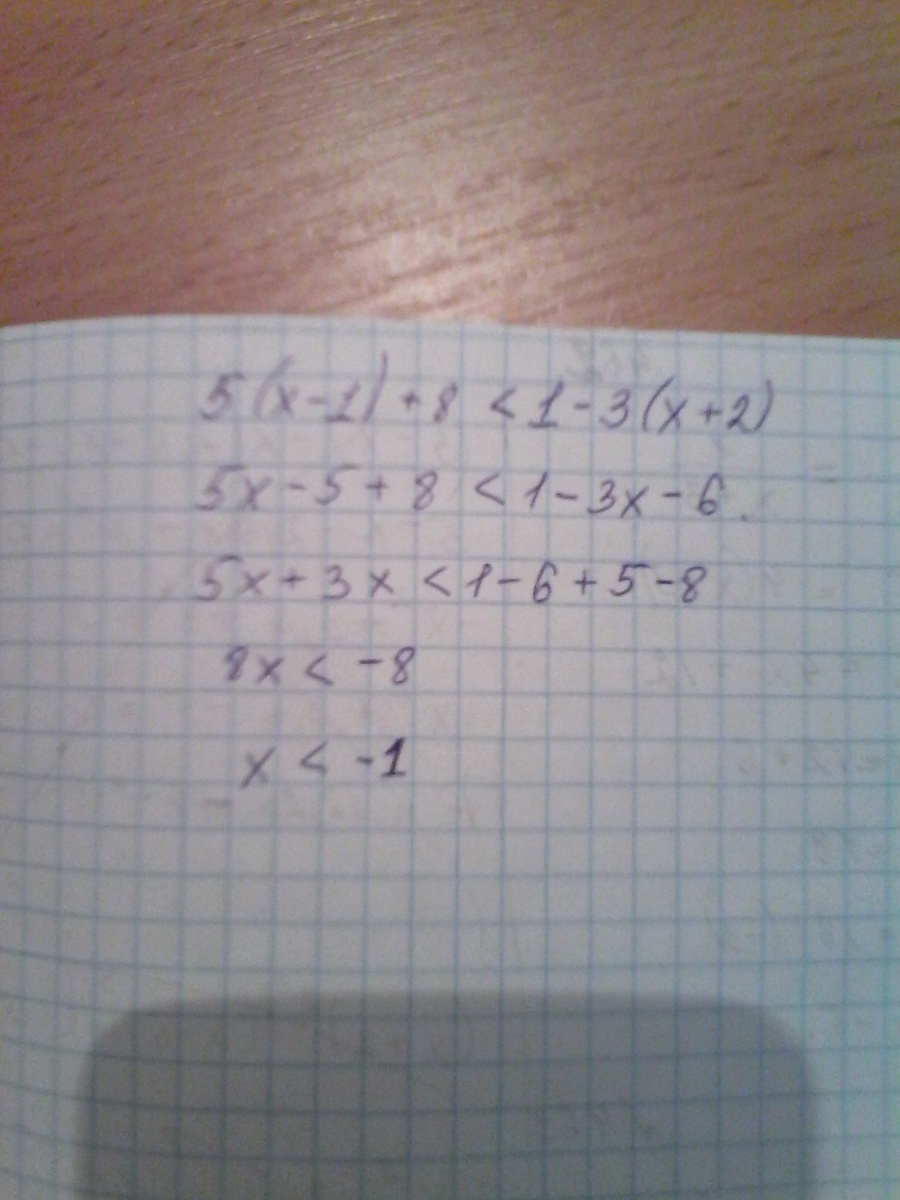 5(x-1)+8 < 1-3(x+2)
5x-5+8 < 1-3x-6.
5x+3x < 1-6+5-8
8x < -8
x < -1